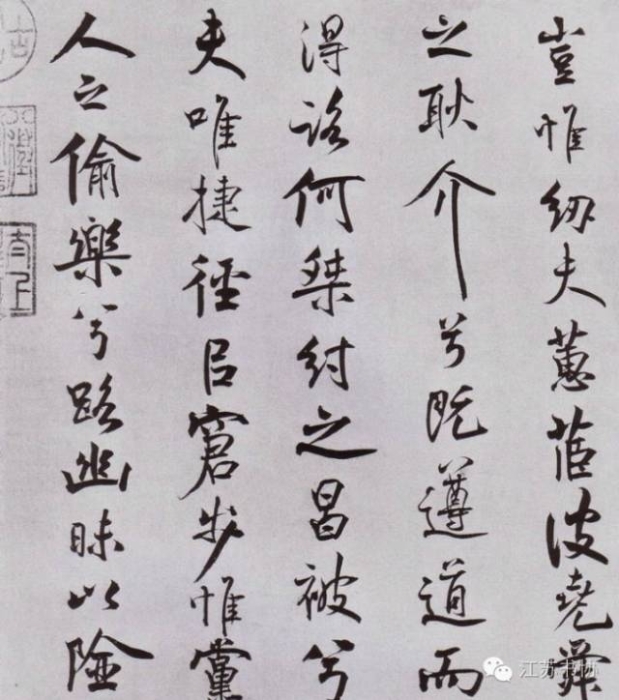 豈惟紉夫蕙茝彼堯舜
之耿介兮既遵道而
得路何桀紂之昌被兮
夫唯捷徑㠯窘步惟黨
人之偷樂兮路幽昧以險
江苏书协